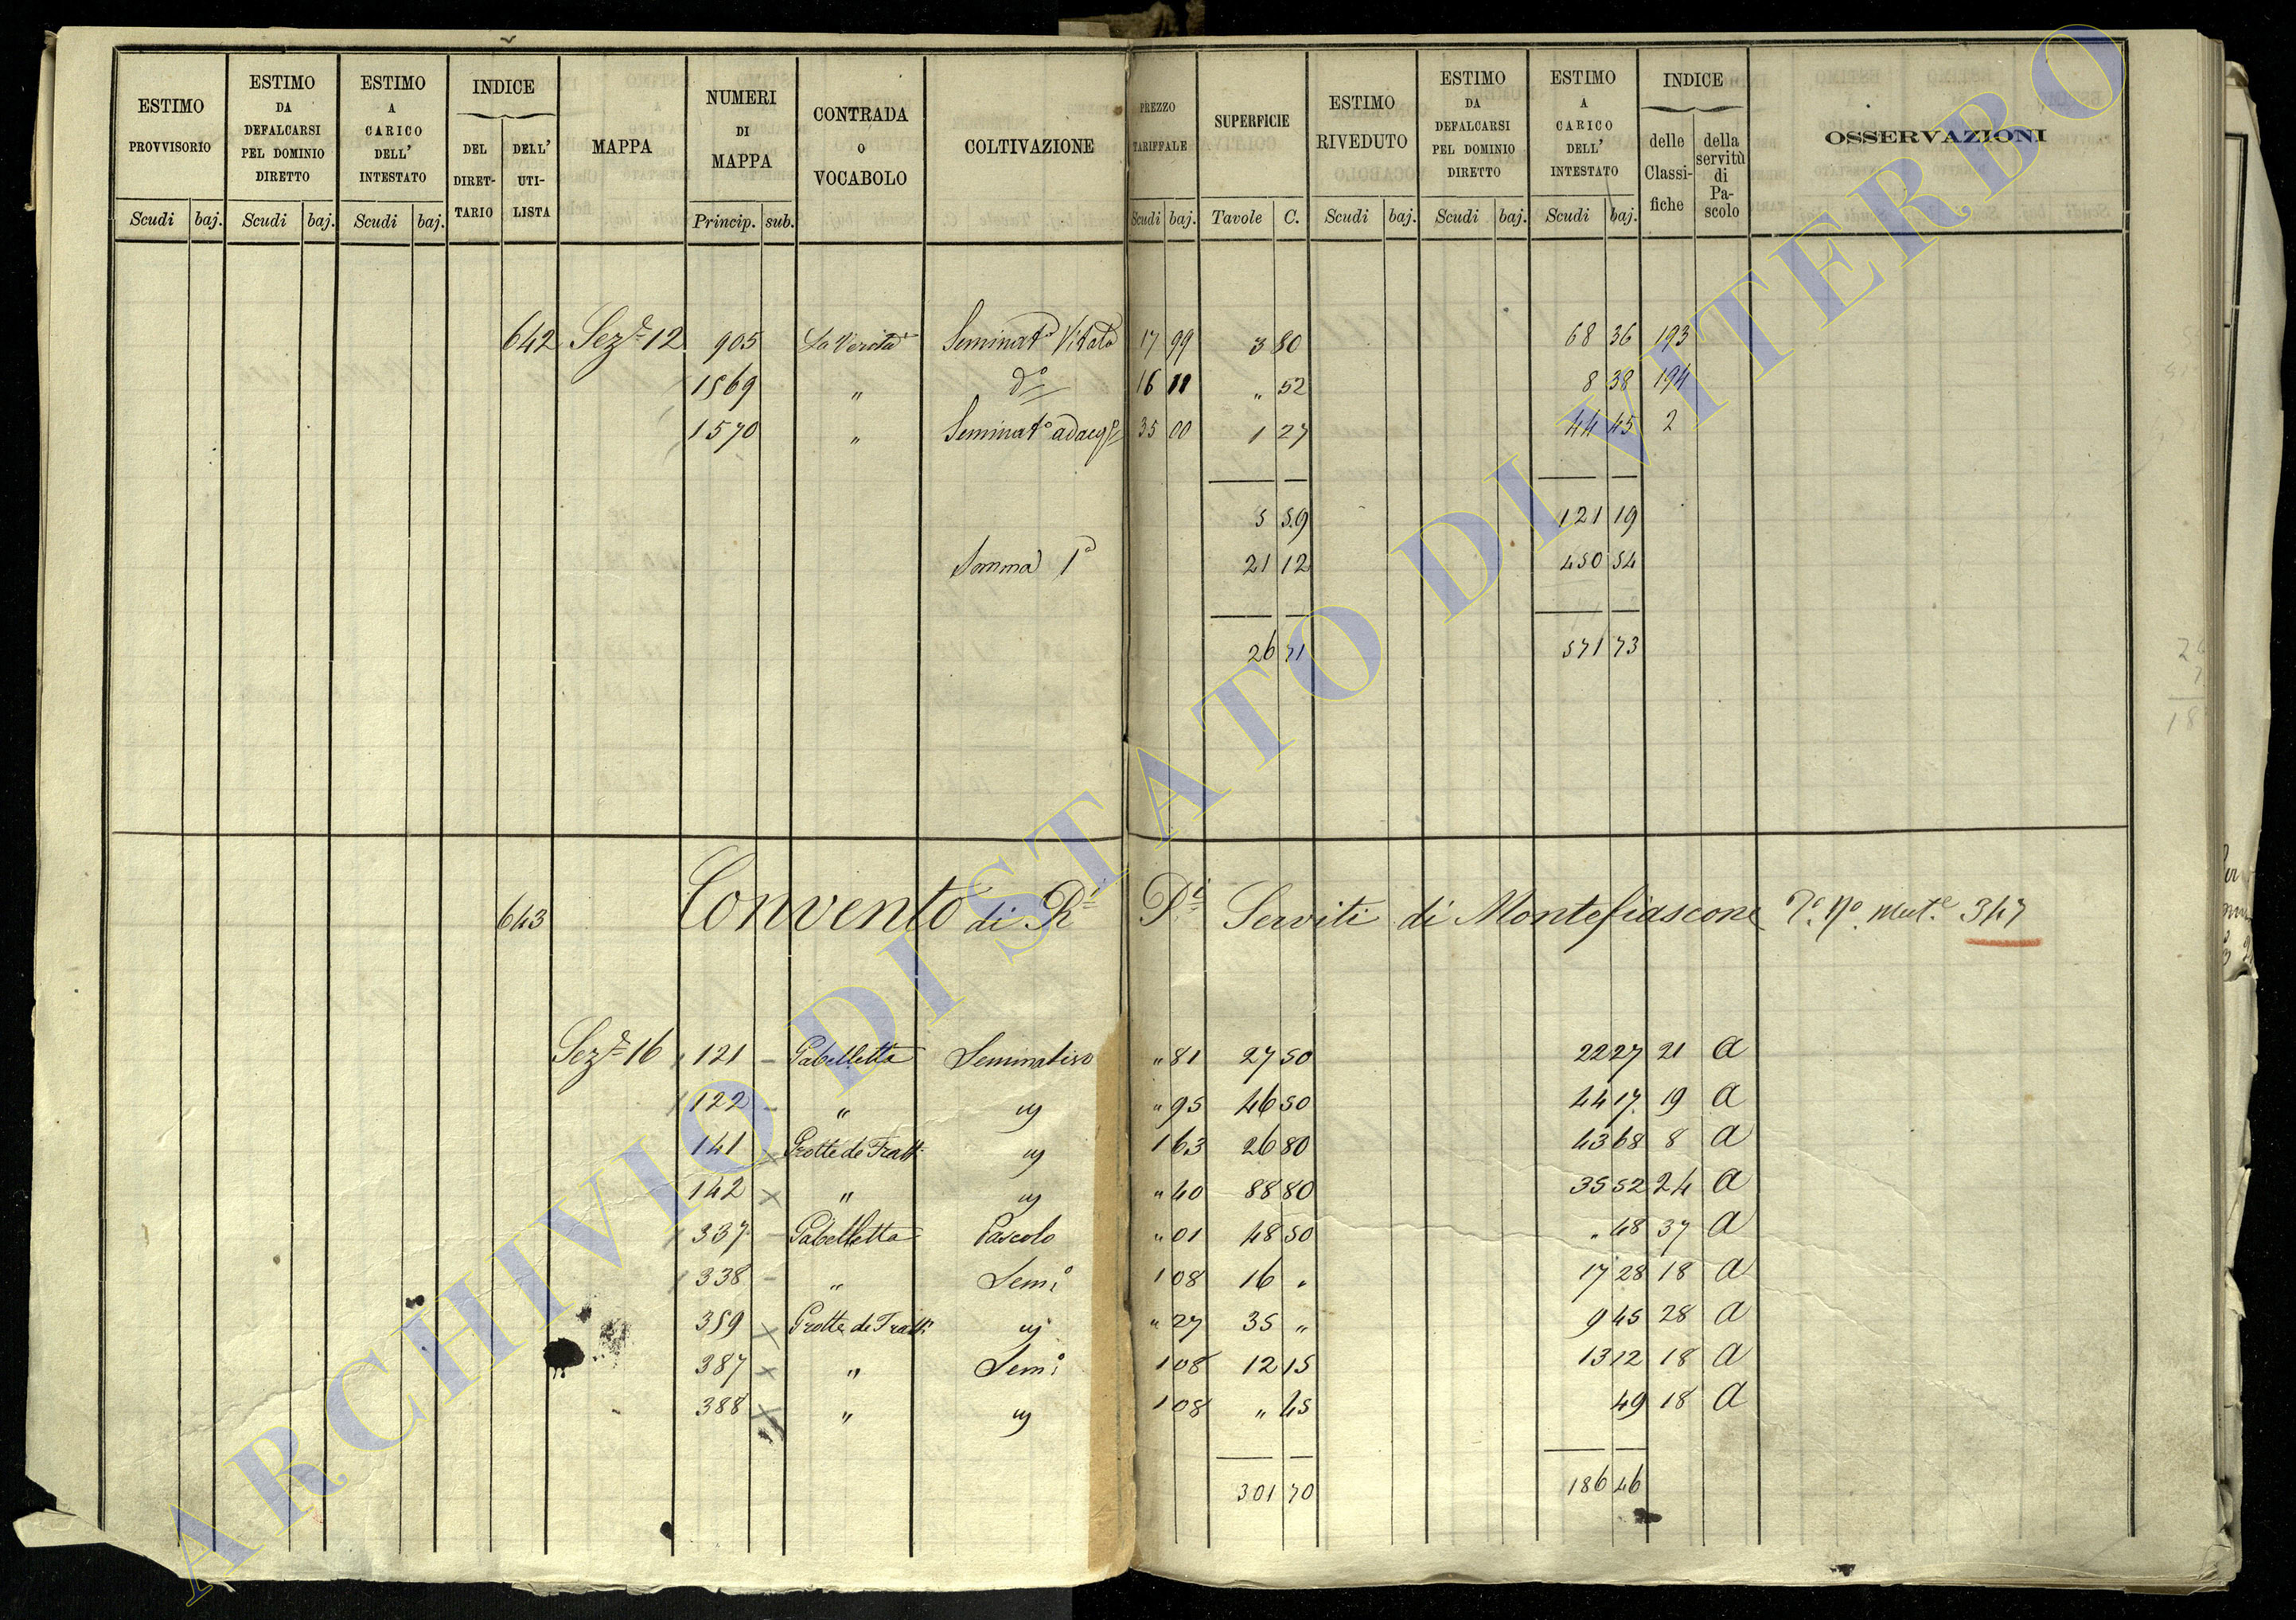 ESTIMO PROVVISORIO
Scudi baj.
ESTIMO DA DEFALCARSI PEL DOMINIO DIRETTO
Scudi baj.
ESTIMO A CARICO DELL' INTESTATO
Scudi baj.
INDICE
DEL DIRET-TARIO
DELL' UTI-LISTA
MAPPA
NUMERI DI MAPPA
Princip. sub.
CONTRADA O VOCABOLO
COLTIVAZIONE
PREZZO TARIFFALE
Scudi baj.
SUPERFICIE
Tavole C.
ESTIMO RIVEDUTO
Scudi baj.
ESTIMO DA DEFALCARSI PEL DOMINIO DIRETTO
Scudi baj.
ESTIMO A CARICO DELL' INTESTATO
Scudi baj.
INDICE
delle Classi-fiche
della servitù di Pa-scolo
OSSERVAZIONI
642 Sez.e 12 905 La Verità Seminat.o Vitato 17 99 3 80 68 36 193
1569 " d.o 16 11 " 52 8 38 194
1570 " Seminat.o adacq.o 35 00 1 27 44 45 2
5 59 121 19
Somma 1a 21 12 450 54
26 71 571 73
643 Convento di R.i P.i Serviti di Montefiascone 347
Sez.e 16 121 - Gabelletta Seminativo " 81 27 50 22 27 21 a
122 - " uj " 95 46 50 44 17 19 a
141 x Grotte de Frati uj 1 63 26 80 43 68 8 a
142 x " uj " 40 88 80 35 52 24 a
337 - Gabelletta Pascolo " 01 48 50 " 48 37 a
338 - " Semi.o 1 08 16 " 17 28 18 a
359 x Grotte de Frati uj " 27 35 " 9 45 28 a
387 x " Semi.o 1 08 12 15 13 12 18 a
388 x " uj 1 08 " 45 49 18 a
301 70 186 46
ARCHIVIO DI STATO DI VITERBO